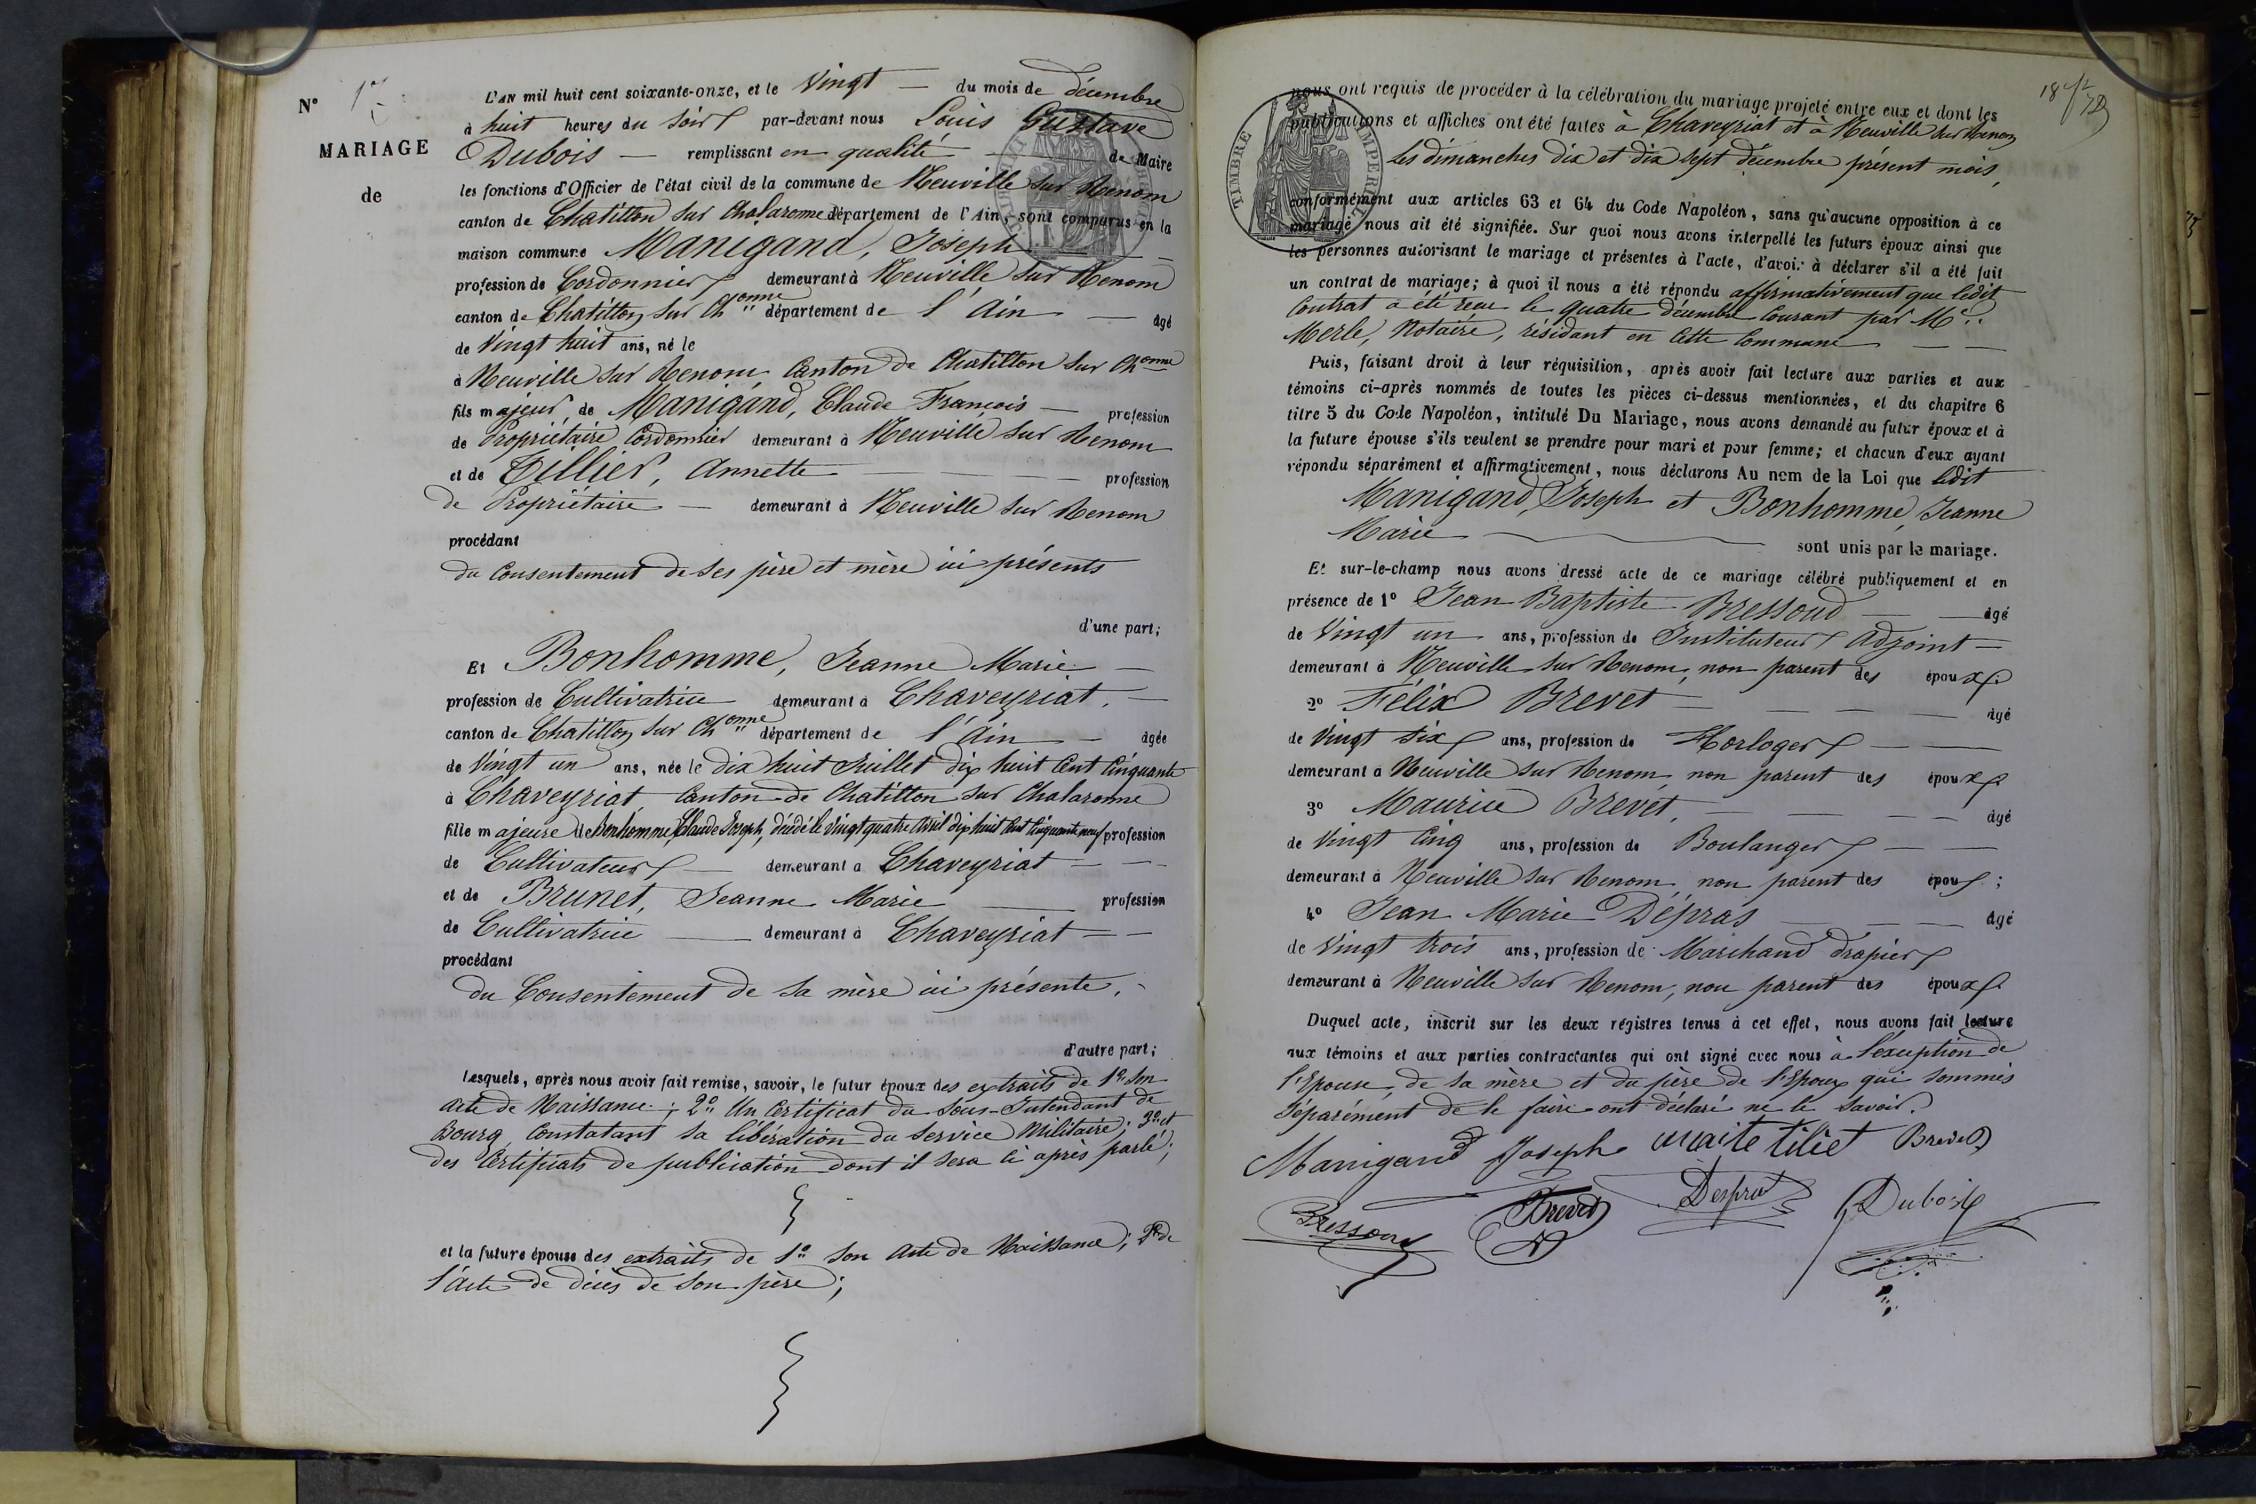 N° 17
MARIAGE
de
L'AN mil huit cent soixante-onze, et le Vingt — du mois de décembre
à huit heures du soir par-devant nous Louis Gustave
Dubois — remplissant en qualité — de Maire
les fonctions d'Officier de l'état civil de la commune de Neuville sur Renom
canton de Chatillon sur Chalaronne département de l'Ain, sont comparus en la
maison commune Manigand, Joseph —
profession de Cordonnier demeurant à Neuville sur Renom
canton de Chatillon sur Chonne département de l'Ain — âgé
de Vingt huit ans, né le
à Neuville sur Renom, Canton de Chatillon sur Chonne
fils majeur de Manigand, Claude François — profession
de Propriétaire Cordonnier demeurant à Neuville sur Renom
et de Tillier, Annette — profession
de Propriétaire — demeurant à Neuville sur Renom
procédant
du Consentement de ses père et mère ici présents
d'une part;
Et Bonhomme, Jeanne Marie —
profession de Cultivatrice demeurant à Chaveyriat, —
canton de Chatillon sur Chonne département de l'Ain — âgée
de Vingt un ans, née le dix huit Juillet dix huit Cent Cinquante
à Chaveyriat, Canton de Chatillon sur Chalaronne
fille majeure de Bonhomme, Claude Joseph, décédé le Vingt quatre Avril dix huit Cent Cinquante neuf profession
de Cultivateur — demeurant à Chaveyriat — —
et de Brunet, Jeanne Marie — profession
de Cultivatrice — demeurant à Chaveyriat — —
procédant
du Consentement de sa mère ici présente,
d'autre part;
Lesquels, après nous avoir fait remise, savoir, le futur époux des extraits de 1° son
acte de Naissance; 2° Un Certificat du Sous-Intendant de
Bourg, Constatant sa libération du service Militaire; 3° et
des Certificats de publication dont il sera ci après parlé;
et la future épouse des extraits de 1° son acte de Naissance; 2° de
l'acte de décès de son père;
nous ont requis de procéder à la célébration du mariage projeté entre eux et dont les
publications et affiches ont été faites à Chaveyriat et à Neuville sur Renom
Les dimanches dix et dix sept décembre présent mois,
TIMBRE IMPERIAL
conformément aux articles 63 et 64 du Code Napoléon, sans qu'aucune opposition à ce
mariage nous ait été signifiée. Sur quoi nous avons interpellé les futurs époux ainsi que
les personnes autorisant le mariage et présentes à l'acte, d'avoir à déclarer s'il a été fait
un contrat de mariage; à quoi il nous a été répondu affirmativement que ledit
Contrat a été reçu le quatre décembre Courant par Me
Merle, Notaire, résidant en Cette Commune — —
Puis, faisant droit à leur réquisition, après avoir fait lecture aux parties et aux
témoins ci-après nommés de toutes les pièces ci-dessus mentionnées, et du chapitre 6
titre 5 du Code Napoléon, intitulé Du Mariage, nous avons demandé au futur époux et à
la future épouse s'ils veulent se prendre pour mari et pour femme; et chacun d'eux ayant
répondu séparément et affirmativement, nous déclarons Au nom de la Loi que ledit
Manigand, Joseph et Bonhomme, Jeanne
Marie — sont unis par le mariage.
Et sur-le-champ nous avons dressé acte de ce mariage célébré publiquement et en
présence de 1° Jean Baptiste Bressoud — âgé
de Vingt un ans, profession de Instituteur Adjoint —
demeurant à Neuville sur Renom, non parent des époux;
2° Félix Brevet — — — âgé
de Vingt six ans, profession de Horloger — —
demeurant à Neuville sur Renom, non parent des époux;
3° Maurice Brevet, — — — âgé
de Vingt Cinq ans, profession de Boulanger — —
demeurant à Neuville sur Renom, non parent des époux;
4° Jean Marie Dépras — — âgé
de Vingt trois ans, profession de Marchand drapier
demeurant à Neuville sur Renom, non parent des époux.
Duquel acte, inscrit sur les deux régistres tenus à cet effet, nous avons fait lecture
aux témoins et aux parties contractantes qui ont signé avec nous à l'exception de
l'Epouse, de sa mère et du père de l'Epoux qui sommés
séparément de le faire ont déclaré ne le savoir.
Manigand Joseph naite tiliet Brevet
Bressoud Brevet Depras Dubois